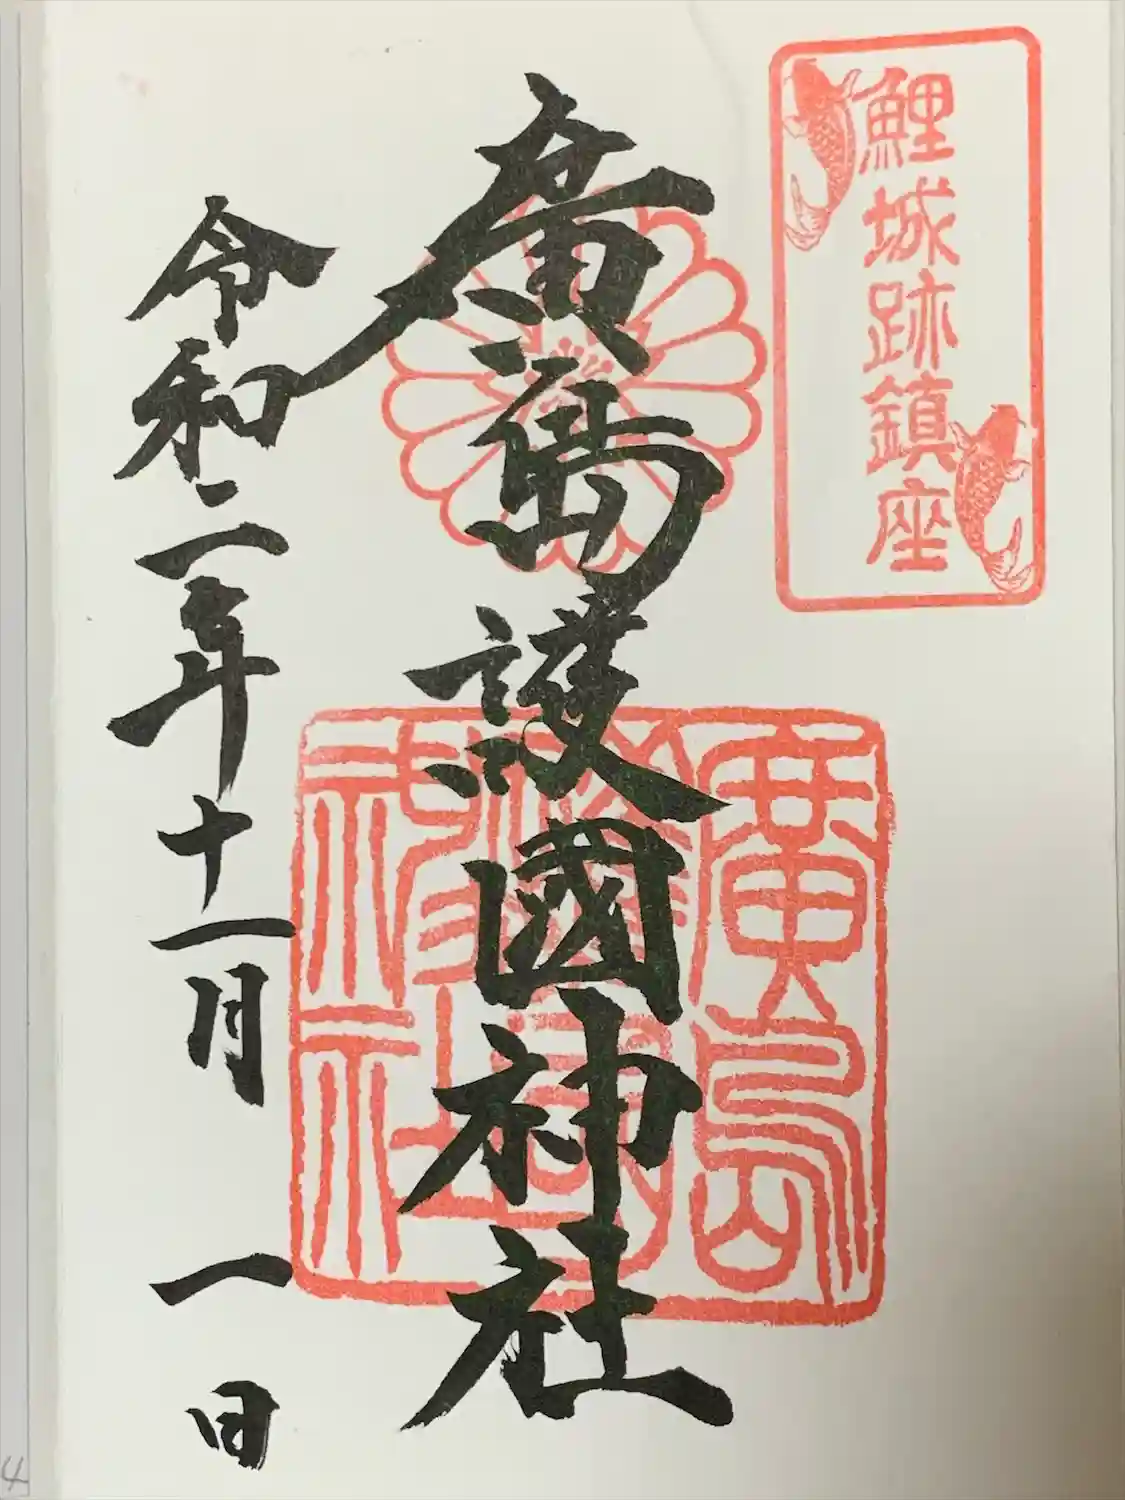 鯉城跡鎮座
廣島護國神社
廣島護國神社
令和二年十一月一日
4